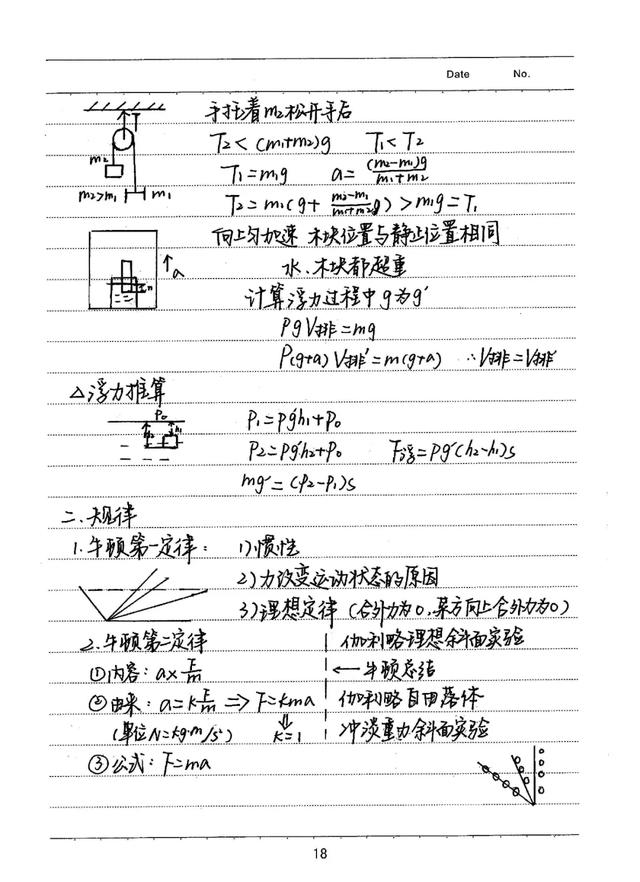 Date No.
手托着m₂松开手后
T₂<(m₁+m₂)g T₁<T₂
T₁=m₁g a=(m₂-m₁)g/m₁+m₂
T₂=m₁(g+m₂-m₁/m₁+m₂g)>m₁g=T₁
T
m₂
m₂>m₁ m₁
向上匀加速 木块位置与静止位置相同
水、木块都超重
a
计算浮力过程中g为g′
ρgV排=mg
ρ(g+a)V排′=m(g+a) ∴V排=V排′
△浮力推算
P₀
h₂ h₁
P₁=ρg′h₁+P₀
P₂=ρg′h₂+P₀ F浮=ρg′(h₂-h₁)s
mg′=(P₂-P₁)s
二、规律
1.牛顿第一定律: 1)惯性
2)力改变运动状态的原因
3)理想定律(合外力为0,某方向上合外力为0)
2.牛顿第二定律 伽利略理想斜面实验
①内容:a∝F/m ← 牛顿总结
②由来:a=kF/m ⇒ F=kma 伽利略自由落体
(单位N=kg·m/s²) ⇓ k=1 冲淡重力斜面实验
③公式:F=ma
18